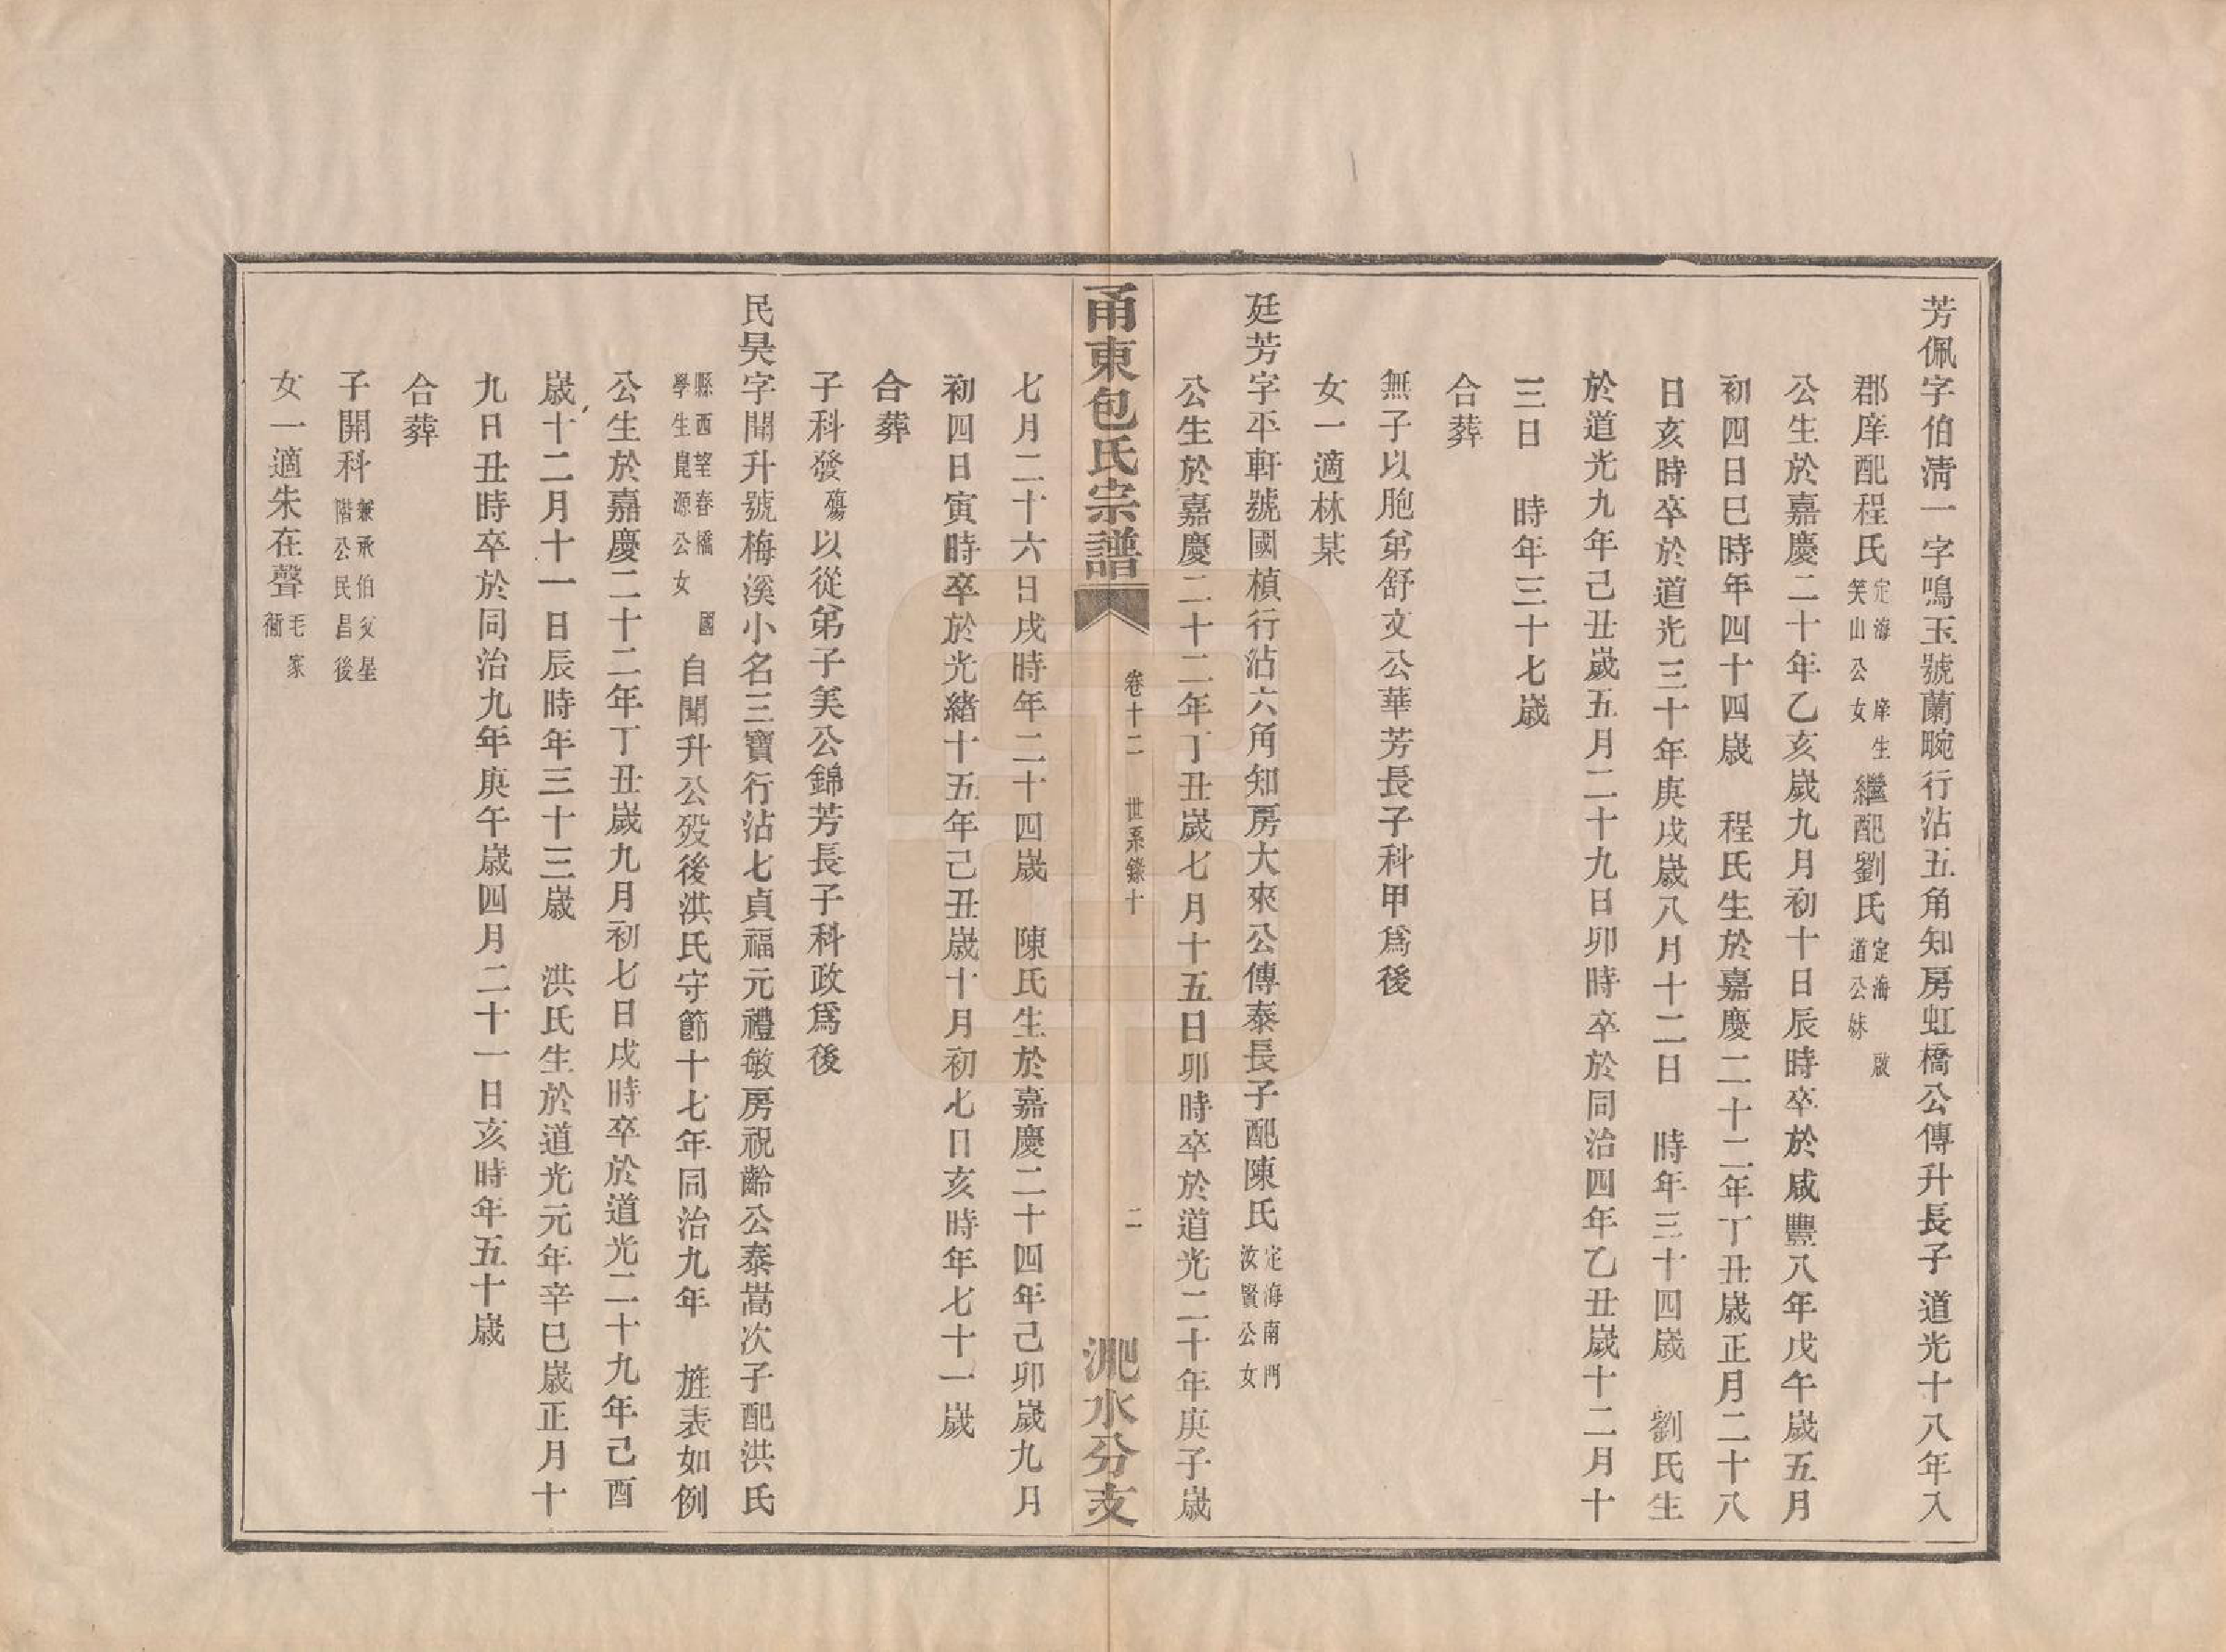 芳佩字伯淸一字鳴玉號蘭畹行沾五角知房虹橋公傳升長子道光十八年入
郡庠配程氏定海庠生笑山公女繼配劉氏定海啟道公妹
公生於嘉慶二十年乙亥歲九月初十日辰時卒於咸豐八年戊午歲五月
初四日巳時年四十四歲　程氏生於嘉慶二十二年丁丑歲正月二十八
日亥時卒於道光三十年庚戌歲八月十二日　時年三十四歲　劉氏生
於道光九年己丑歲五月二十九日卯時卒於同治四年乙丑歲十二月十
三日　時年三十七歲
合葬
無子以胞弟舒文公華芳長子科甲爲後
女一適林某
廷芳字平軒號國楨行沾六角知房大來公傳泰長子配陳氏定海南門汝賢公女
公生於嘉慶二十二年丁丑歲七月十五日卯時卒於道光二十年庚子歲
甬東包氏宗譜　卷十二　世系錄十　二　淝水分支
七月二十六日戌時年二十四歲　陳氏生於嘉慶二十四年己卯歲九月
初四日寅時卒於光緒十五年己丑歲十月初七日亥時年七十一歲
合葬
子科發殤以從弟子美公錦芳長子科政爲後
民昊字聞升號梅溪小名三寶行沾七貞福元禮敏房祝齡公泰嵩次子配洪氏
縣西望春橋國學生崑源公女　自聞升公歿後洪氏守節十七年同治九年　旌表如例
公生於嘉慶二十二年丁丑歲九月初七日戌時卒於道光二十九年己酉
歲十二月十一日辰時年三十三歲　洪氏生於道光元年辛巳歲正月十
九日丑時卒於同治九年庚午歲四月二十一日亥時年五十歲
合葬
子開科兼承伯父星階公民昌後
女一適朱在聲毛家衕